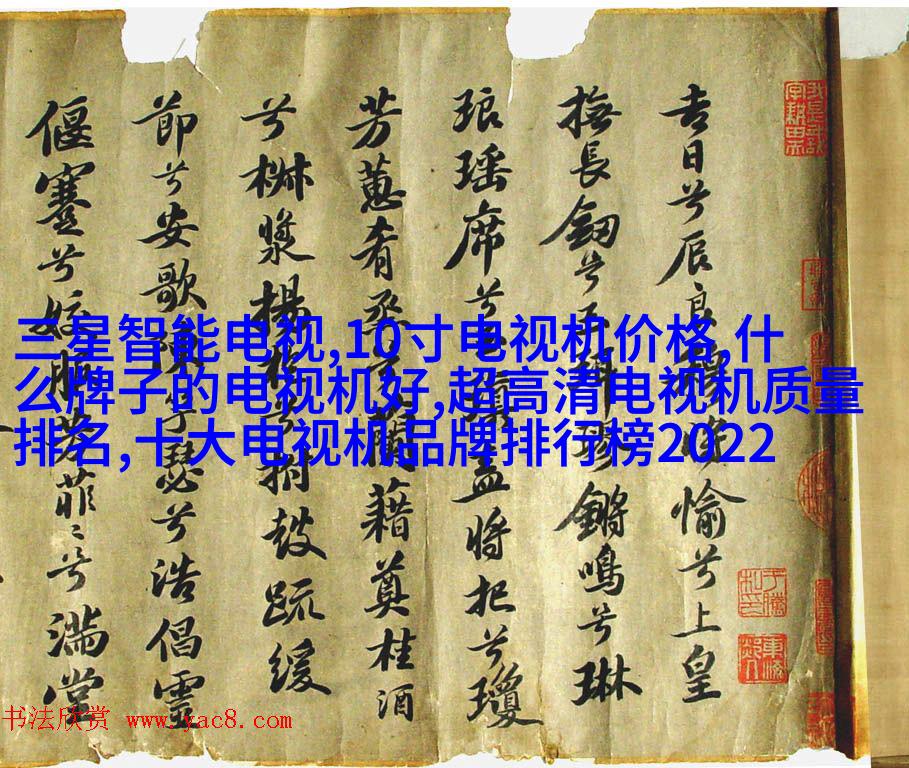 吉日兮辰良穆將愉兮上皇
撫長劒兮玉珥璆鏘鳴兮琳
琅瑶席兮玉瑱盍將把兮瓊
芳蕙肴烝兮蘭藉奠桂酒
兮椒漿揚枹兮拊鼓疏緩
節兮安歌陳竽瑟兮浩倡靈
偃蹇兮姣服芳菲〻兮滿堂
三星智能电视,10寸电视机价格,什
么牌子的电视机好,超高清电视机质量
排名,十大电视机品牌排行榜2022
书法欣赏 www.yac8.com